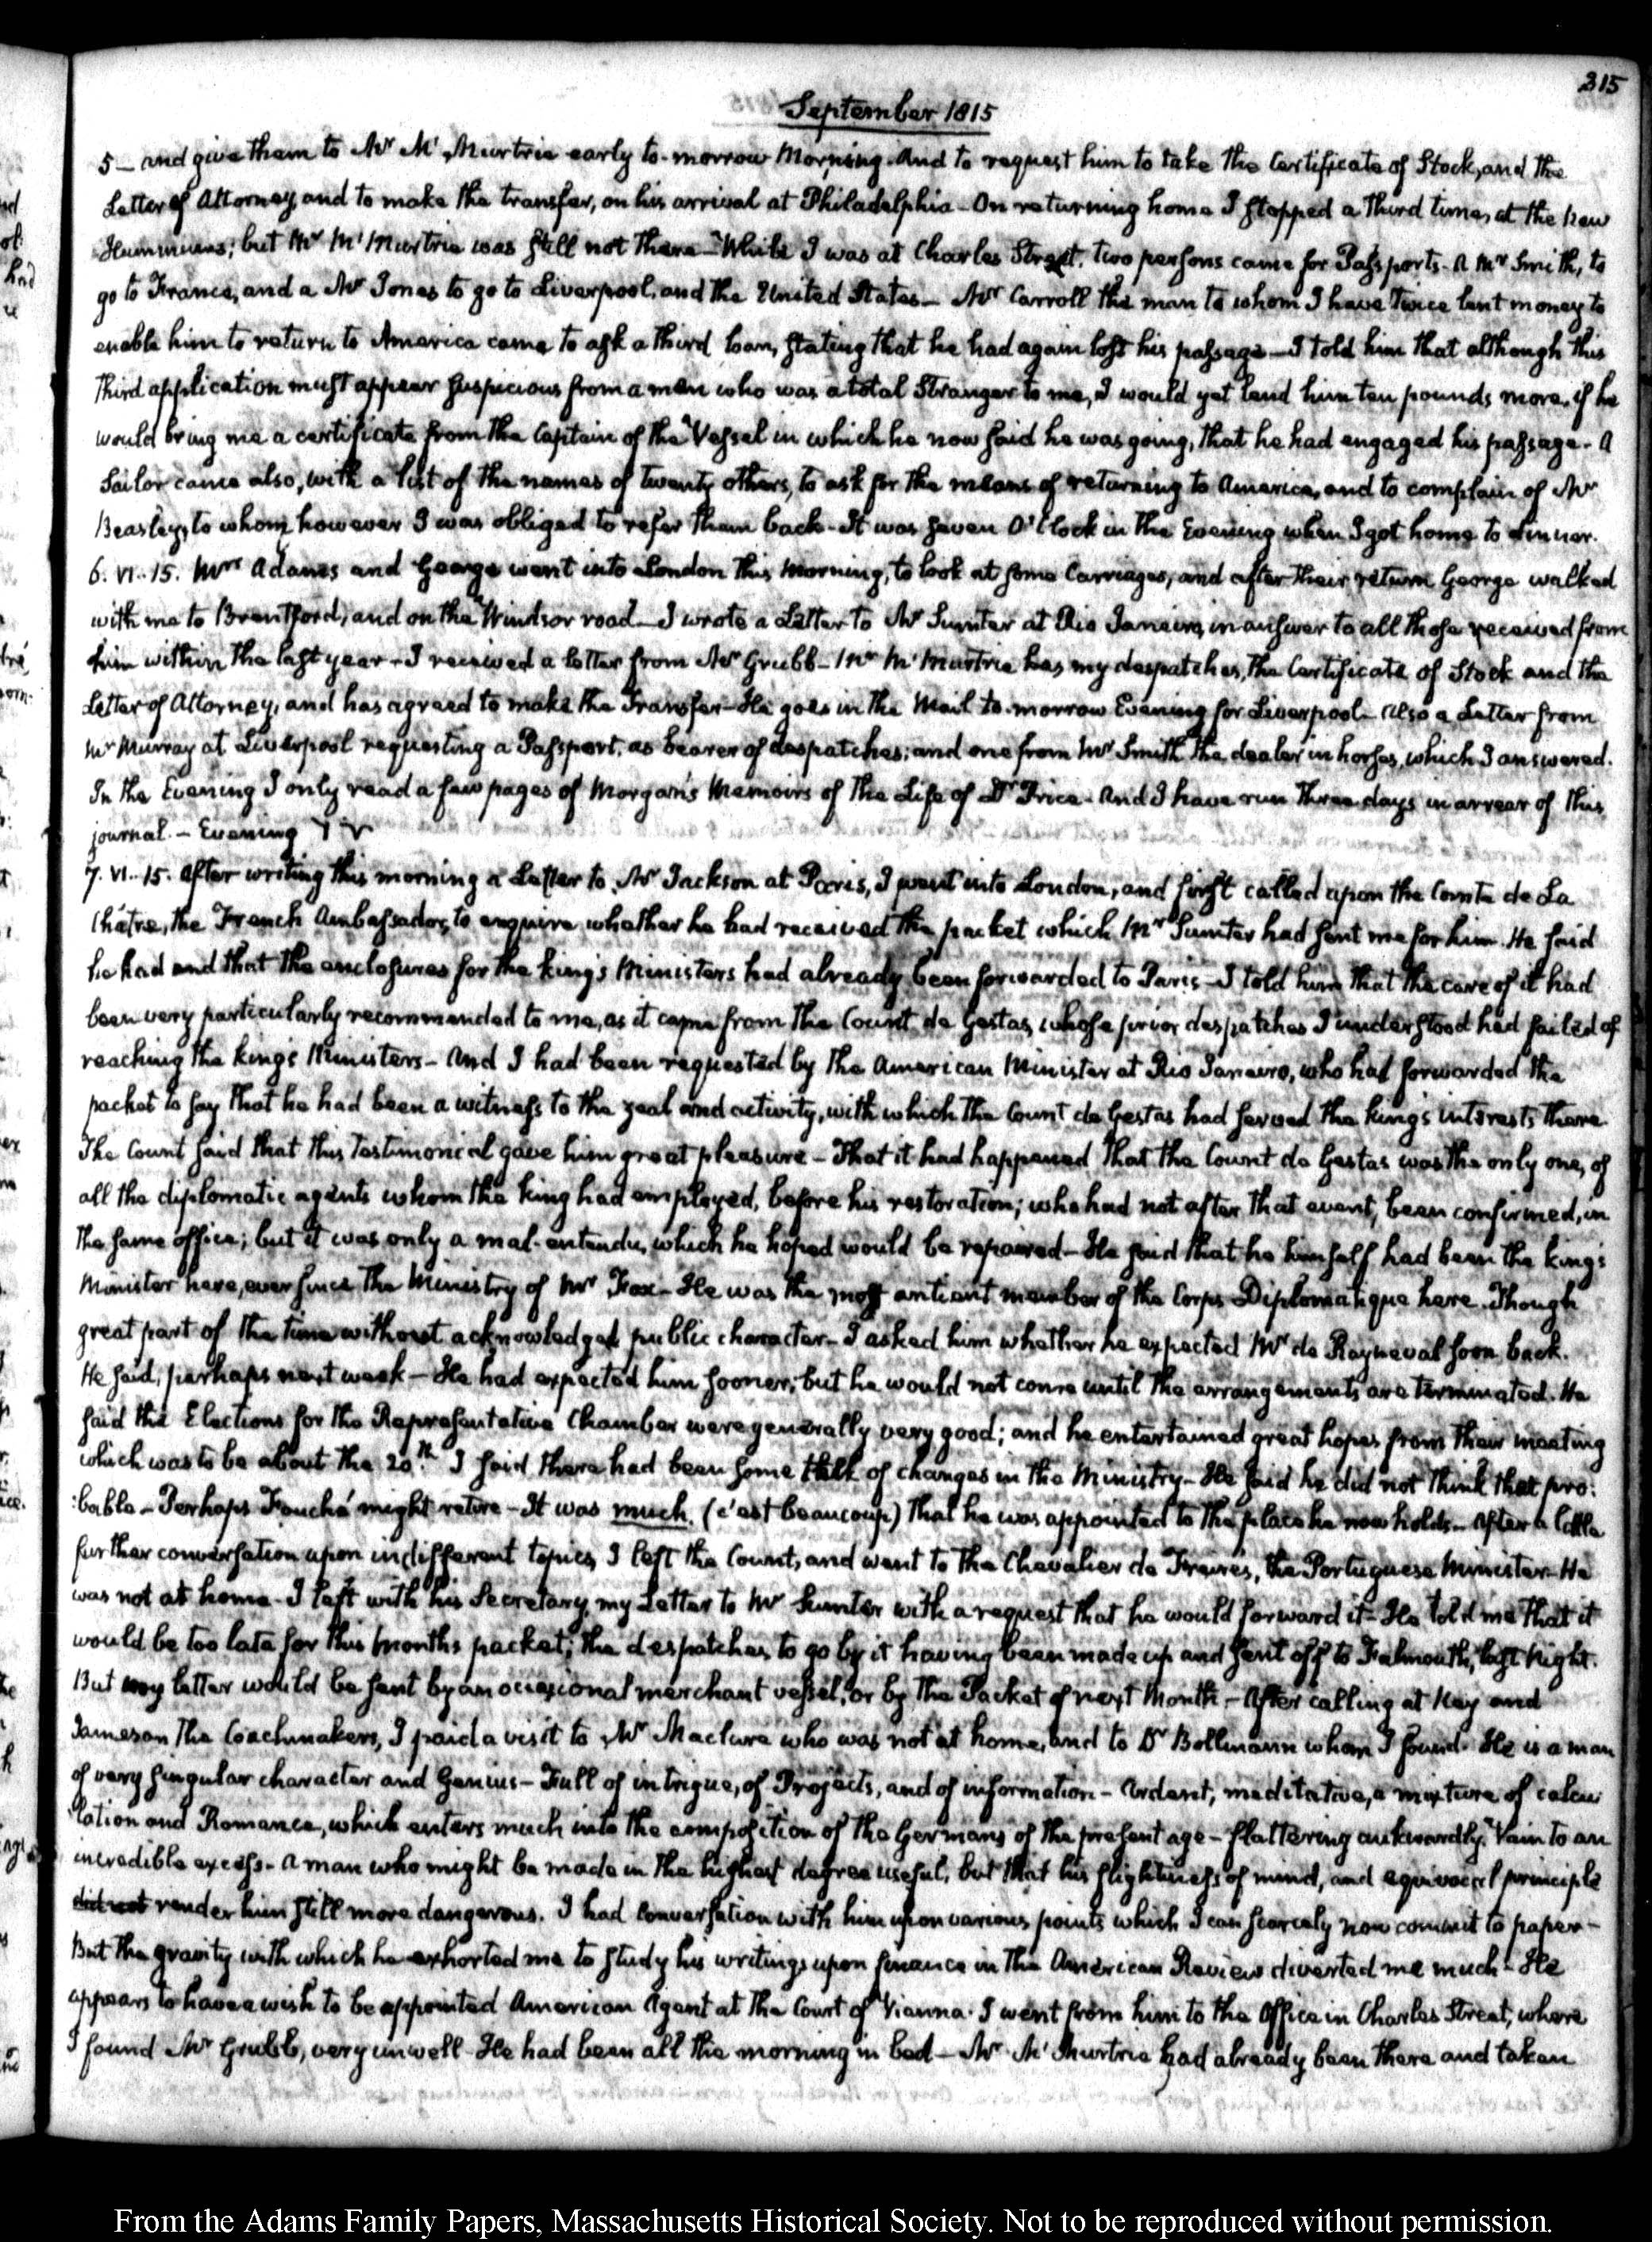 315
September 1815
5 — and give them to Mr McMurtrie early to-morrow Morning. And to request him to take the Certificate of Stock, and the
Letter of Attorney, and to make the transfer, on his arrival at Philadelphia — On returning home I stopped a third time, at the New
Hummums; but Mr McMurtrie was still not there — While I was at Charles Street, two persons came for Passports. A Mr Smith, to
go to France, and a Mr Jones to go to Liverpool, and the United States — Mr Carroll the man to whom I have twice lent money to
enable him to return to America came to ask a third loan, stating that he had again lost his passage — I told him that although this
third application must appear suspicious from a man who was a total Stranger to me, I would yet lend him ten pounds more, if he
would bring me a certificate from the Captain of the Vessel in which he now said he was going, that he had engaged his passage. A
Sailor came also, with a list of the names of twenty others, to ask for the means of returning to America, and to complain of Mr
Beasley, to whom however I was obliged to refer them back. It was seven O'Clock in the Evening when I got home to dinner.
6. VI. 15. Mrs Adams and George went into London this Morning, to look at some Carriages, and after their return George walked
with me to Brentford, and on the Windsor road — I wrote a Letter to Mr Sumter at Rio Janeiro, in answer to all those received from
him within the last year — I received a letter from Mr Grubb — Mr McMurtrie has my despatches, the Certificate of Stock and the
Letter of Attorney, and has agreed to make the Transfer — He goes in the Mail to-morrow Evening for Liverpool — Also a Letter from
Mr Murray at Liverpool requesting a Passport, as bearer of despatches; and one from Mr Smith the dealer in horses, which I answered.
In the Evening I only read a few pages of Morgan's Memoirs of the Life of Dr Price. And I have run three days in arrear of this
journal. — Evening
7. VI. 15. After writing this morning a Letter to Mr Jackson at Paris, I went into London, and first called upon the Comte de La
Châtre, the French Ambassador, to enquire whether he had received the packet which Mr Sumter had sent me for him. He said
he had and that the enclosures for the king's Ministers had already been forwarded to Paris — I told him that the care of it had
been very particularly recommended to me, as it came from the Count de Gestas, whose prior despatches I understood had failed of
reaching the king's Ministers — And I had been requested by the American Minister at Rio Janeiro, who had forwarded the
packet to say that he had been a witness to the zeal and activity, with which the Count de Gestas had served the king's interests there.
The Count said that this testimonial gave him great pleasure — That it had happened that the Count de Gestas was the only one, of
all the diplomatic agents whom the king had employed, before his restoration; who had not after that event, been confirmed, in
the same office; but it was only a mal-entendu, which he hoped would be repaired — He said that he himself had been the king's
Minister here, ever since the Ministry of Mr Fox — He was the most antient member of the Corps Diplomatique here. Though
great part of the time without acknowledged public character — I asked him whether he expected Mr de Rayneval soon back.
He said, perhaps next week — He had expected him sooner; but he would not come until the arrangements are terminated. He
said the Elections for the Representative Chamber were generally very good; and he entertained great hopes from their meeting
which was to be about the 20th. I said there had been some talk of changes in the Ministry — He said he did not think that pro:
:bable — Perhaps Fouché might retire — It was much, (c'est beaucoup) that he was appointed to the place he now holds — After a little
further conversation upon indifferent topics, I left the Count, and went to the Chevalier de Freires, the Portuguese Minister — He
was not at home. I left with his Secretary, my Letter to Mr Sumter with a request that he would forward it — He told me that it
would be too late for this month's packet; the despatches, to go by it having been made up and sent off to Falmouth, last Night.
But my letter would be sent by an occasional merchant vessel, or by the Packet of next Month — After calling at Kay and
Jameson the Coachmakers, I paid a visit to Mr Maclure who was not at home, and to Dr Bollmann whom I found. He is a man
of very singular character and Genius — Full of intrigue, of Projects, and of information — Ardent, meditative, a mixture of calcu
:lation and Romance, which enters much into the composition of the Germans of the present age — flattering awkwardly, Vain to an
incredible excess. A man who might be made in the highest degree useful, but that his flightiness of mind, and equivocal principle
did not render him still more dangerous. I had conversation with him upon various points which I can scarcely now commit to paper —
But the gravity with which he exhorted me to study his writings upon finance in the American Review diverted me much — He
appears to have a wish to be appointed American Agent at the Court of Vienna. I went from him to the Office in Charles Street, where
I found Mr Grubb, very unwell — He had been all the morning in bed — Mr McMurtrie had already been there and taken
From the Adams Family Papers, Massachusetts Historical Society. Not to be reproduced without permission.